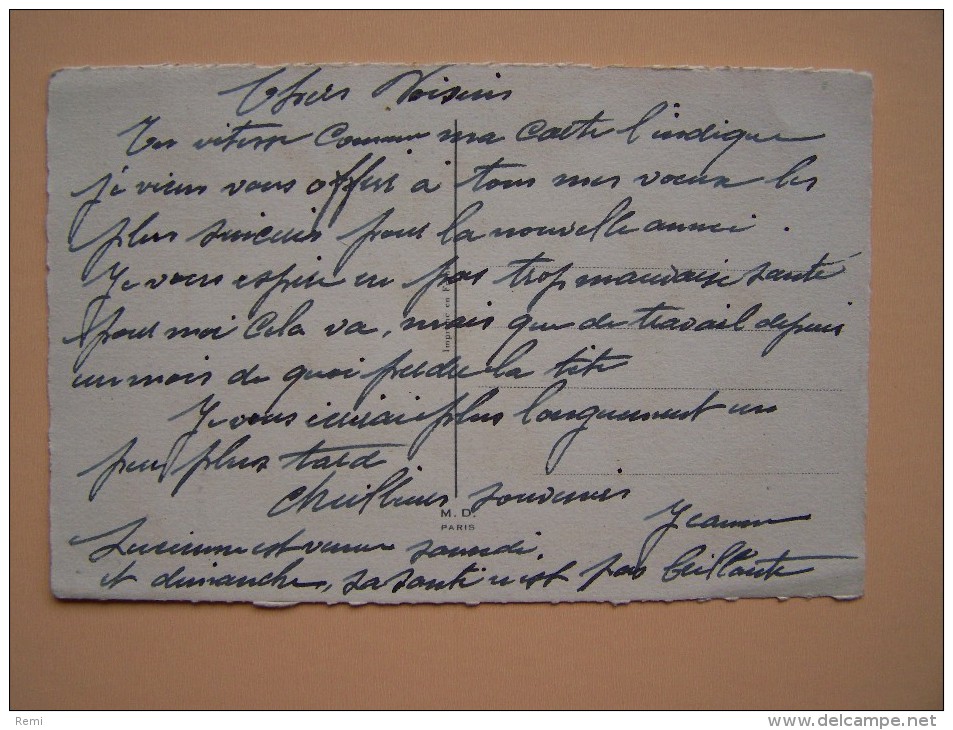 Chers Voisins
En vitesse comme ma carte l'indique
je viens vous offrir à tous mes voeux les
plus sincères pour la nouvelle année.
Je vous espère en pas trop mauvaise santé
pour moi cela va, mais que de travail depuis
un mois de quoi perdre la tête
Je vous écrirai plus longuement un
peu plus tard
Meilleurs souvenirs
Jeanne
Lucienne est venue samedi
et dimanche, sa santé n'est pas brillante
Imprimé en
M. D.
PARIS
Remi
www.delcampe.net